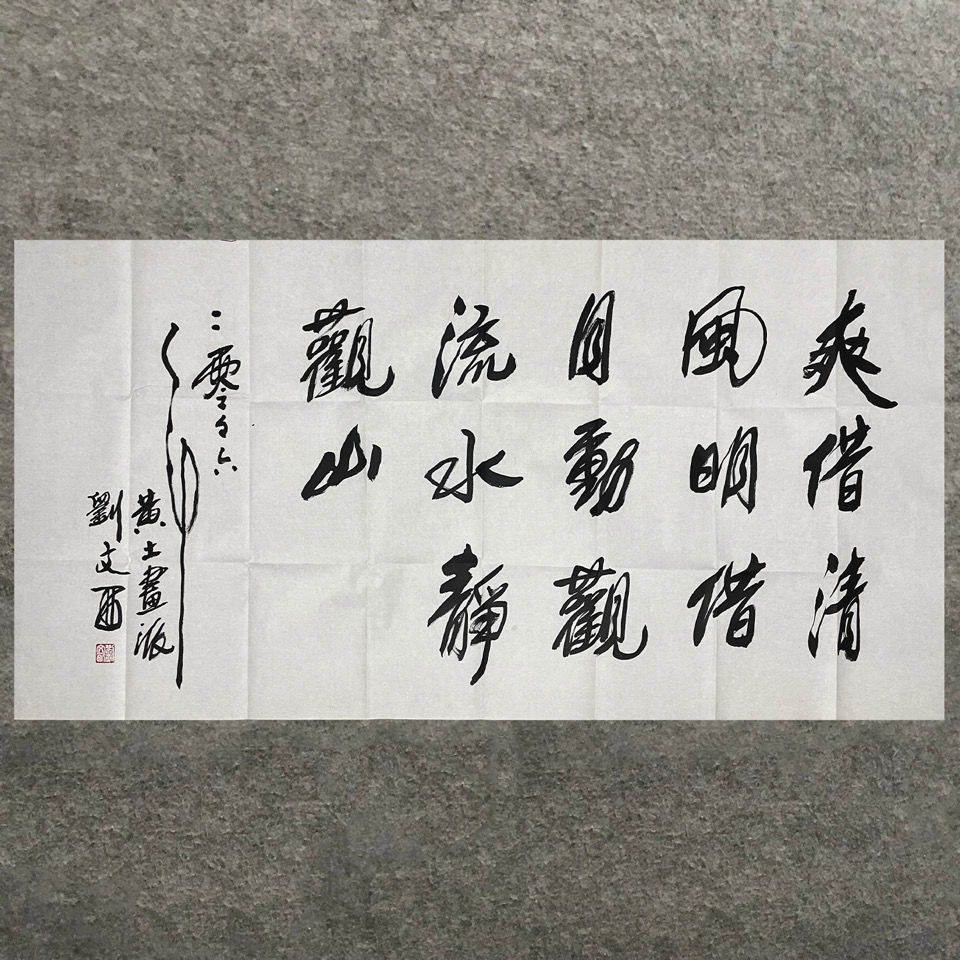 爽借清
風明借
月動觀
流水靜
觀山
二零々六
年
黄土畫派
劉文西